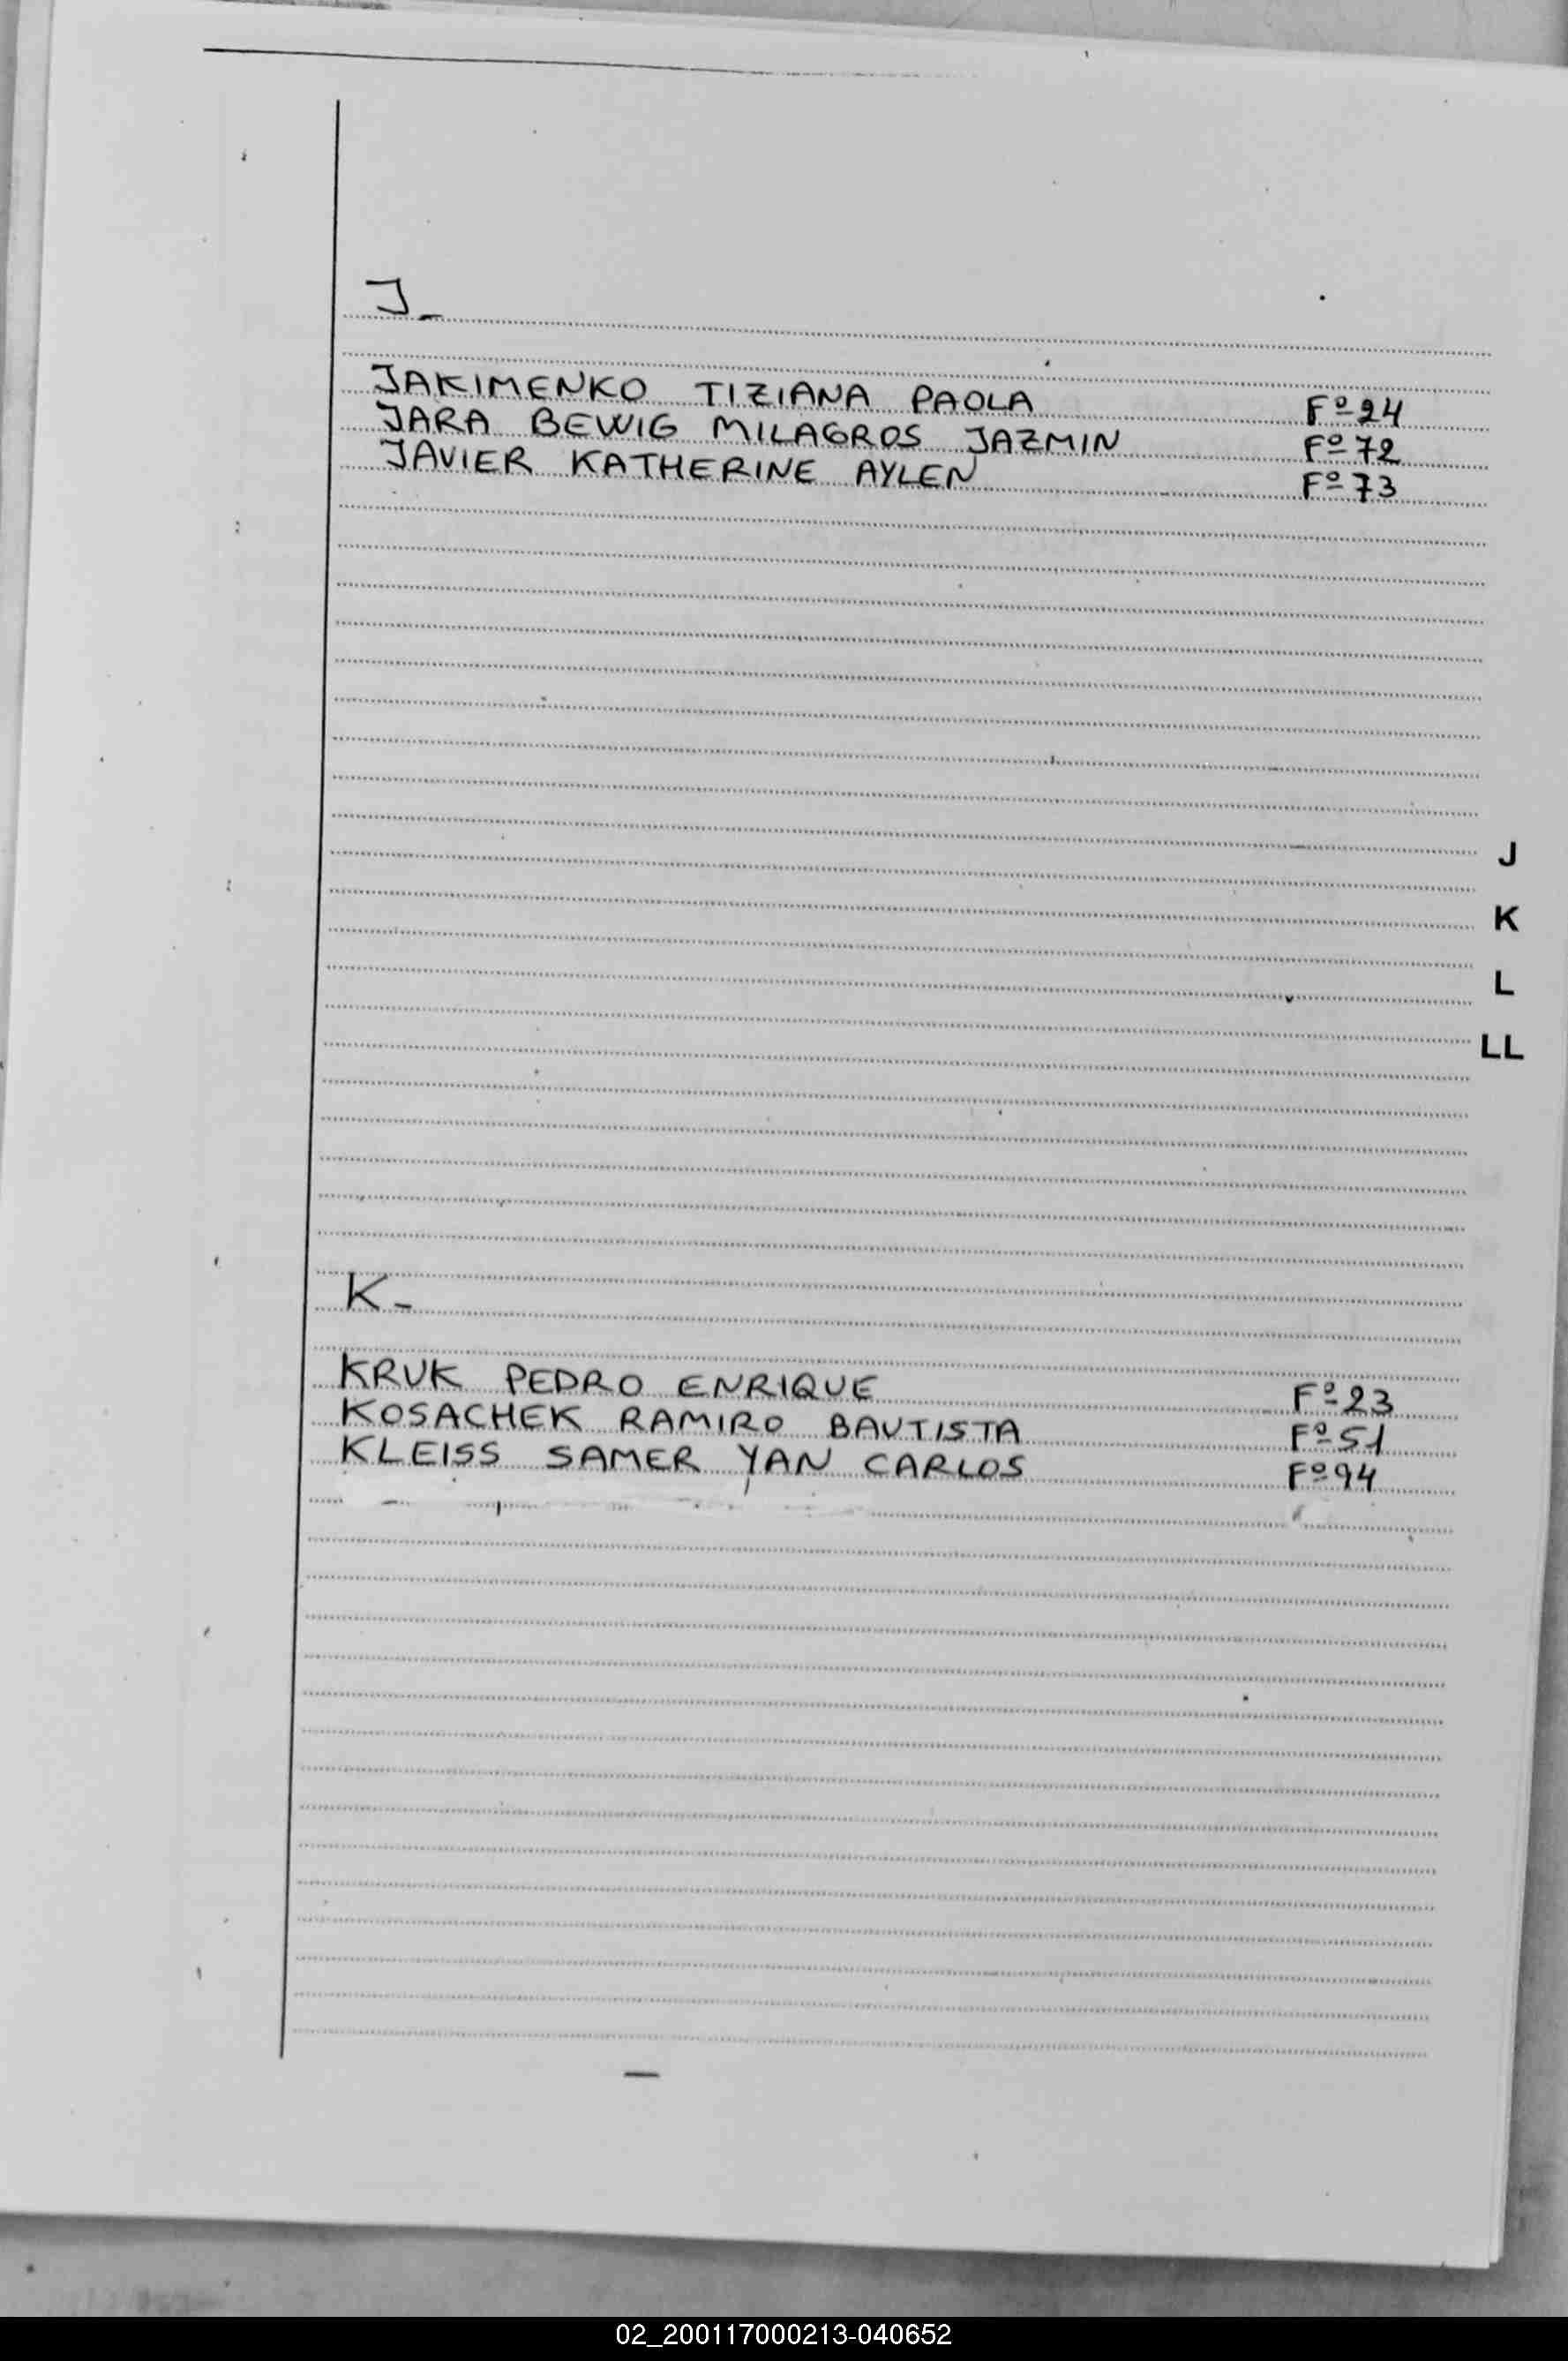 J_
JAKIMENKO TIZIANA PAOLA Fº 24
JARA BEWIG MILAGROS JAZMIN Fº 72
JAVIER KATHERINE AYLEN Fº 73
J
K
L
LL
K-
KRUK PEDRO ENRIQUE Fº 23
KOSACHEK RAMIRO BAUTISTA Fº 51
KLEISS SAMER YAN CARLOS Fº 94
02_200117000213-040652